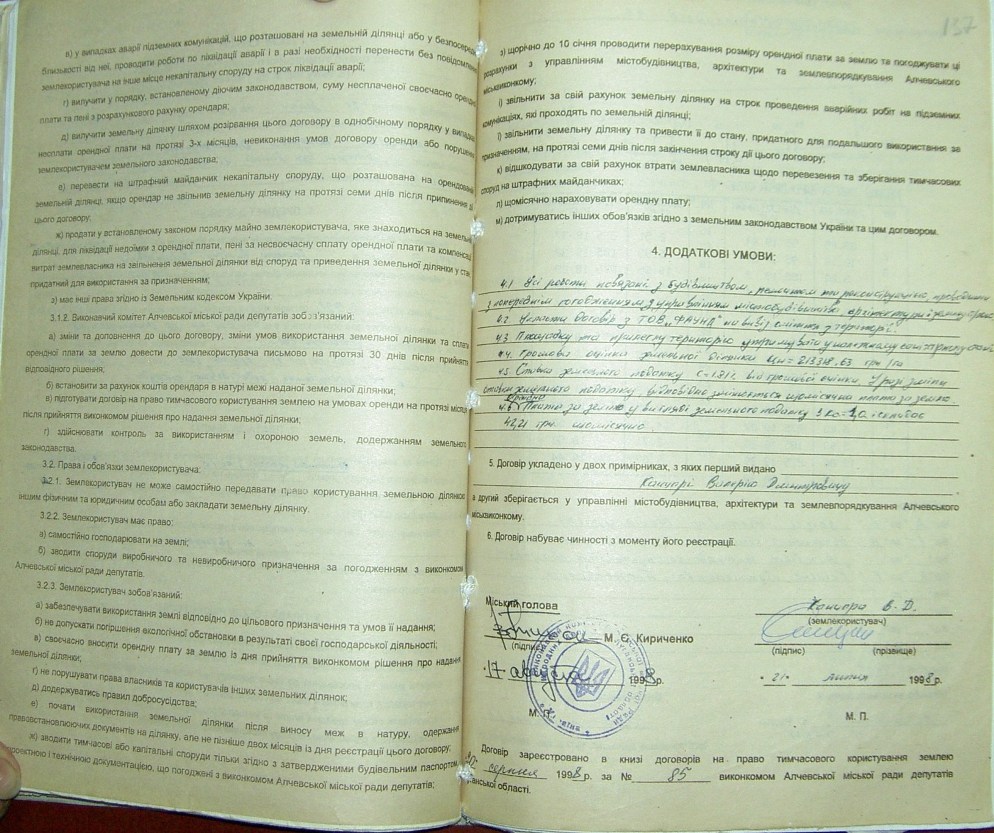 в) у випадках аварії підземних комунікацій, що розташовані на земельній ділянці або у безпосередній
близькості від неї, проводити роботи по ліквідації аварії і в разі необхідності перенести без повідомлення
землекористувача на інше місце некапітальну споруду на строк ліквідації аварії;
г) вилучити у порядку, встановленому діючим законодавством, суму несплаченої своєчасно орендної
плати та пені з розрахункового рахунку орендаря;
д) вилучити земельну ділянку шляхом розірвання цього договору в однобічному порядку у випадку
несплати орендної плати на протязі 3-х місяців, невиконання умов договору оренди або порушення
землекористувачем земельного законодавства;
е) перевести на штрафний майданчик некапітальну споруду, що розташована на орендованій
земельній ділянці, якщо орендар не звільнив земельну ділянку на протязі семи днів після припинення
цього договору;
ж) продати у встановленому законом порядку майно землекористувача, яке знаходиться на земельній
ділянці, для ліквідації недоїмки з орендної плати, пені за несвоєчасну сплату орендної плати та компенсації
витрат землевласника на звільнення земельної ділянки від споруд та приведення земельної ділянки у стан
придатний для використання за призначенням;
з) має інші права згідно із Земельним кодексом України.
3.1.2. Виконавчий комітет Алчевської міської ради депутатів зобов'язаний:
а) зміни та доповнення до цього договору, зміни умов використання земельної ділянки та сплати
орендної плати за землю довести до землекористувача письмово на протязі 30 днів після прийняття
відповідного рішення;
б) встановити за рахунок коштів орендаря в натурі межі наданої земельної ділянки;
в) підготувати договір на право тимчасового користування землею на умовах оренди на протязі місяця
після прийняття виконкомом рішення про надання земельної ділянки;
г) здійснювати контроль за використанням і охороною земель, додержанням земельного
законодавства.
3.2. Права і обов'язки землекористувача:
3.2.1. Землекористувач не може самостійно передавати право користування земельною ділянкою
іншим фізичним та юридичним особам або закладати земельну ділянку.
3.2.2. Землекористувач має право:
а) самостійно господарювати на землі;
б) зводити споруди виробничого та невиробничого призначення за погодженням з виконкомом
Алчевської міської ради депутатів.
3.2.3. Землекористувач зобов'язаний:
а) забезпечувати використання землі відповідно до цільового призначення та умов її надання;
б) не допускати погіршення екологічної обстановки в результаті своєї господарської діяльності;
в) своєчасно вносити орендну плату за землю із дня прийняття виконкомом рішення про надання
земельної ділянки;
г) не порушувати права власників та користувачів інших земельних ділянок;
д) додержуватись правил добросусідства;
е) почати використання земельної ділянки після виносу меж в натуру, одержання
правовстановлюючих документів на ділянку, але не пізніше двох місяців із дня реєстрації цього договору;
ж) зводити тимчасові або капітальні споруди тільки згідно з затвердженими будівельним паспортом,
проектною і технічною документацією, що погоджені з виконкомом Алчевської міської ради депутатів;
137
з) щорічно до 10 січня проводити перерахування розміру орендної плати за землю та погоджувати ці
розрахунки з управлінням містобудівництва, архітектури та землевпорядкування Алчевського
міськвиконкому;
і) звільнити за свій рахунок земельну ділянку на строк проведення аварійних робіт на підземних
комунікаціях, які проходять по земельній ділянці;
ї) звільнити земельну ділянку та привести її до стану, придатного для подальшого використання за
призначенням, на протязі семи днів після закінчення строку дії цього договору;
к) відшкодувати за свій рахунок втрати землевласника щодо перевезення та зберігання тимчасових
споруд на штрафних майданчиках;
л) щомісячно нараховувати орендну плату;
м) дотримуватись інших обов'язків згідно з земельним законодавством України та цим договором.
4. ДОДАТКОВІ УМОВИ:
4.1 Усі роботи пов'язані з будівництвом, ремонтом та реконструкцією, проводити
з попереднім погодженням з управлінням містобудівництва архітектури
4.2. Укласти договір з ТОВ "ФАУНА" на вивіз сміття з території.
4.3 Площадку та прилеглу територію утримувати у належному сан.
4.4. Грошова оцінка земельної ділянки Цн= 213318,63 грн/га
4.5. Ставка земельного податку від грошової оцінки. У разі зміни
ставки земельного податку, відповідно змінюється щомісячна плата за землю.
4.6. Плата за землю у вигляді земельного податку складає
42,21 грн. щомісячно.
5. Договір укладено у двох примірниках, з яких перший видано
Дмитровичу
а другий зберігається у управлінні містобудівництва, архітектури та землевпорядкування Алчевського
міськвиконкому.
6. Договір набуває чинності з моменту його реєстрації.
Міський голова
В. Д.
(землекористувач)
М. Є. Кириченко
(підпис)
(підпис) (прізвище)
"17" 1998р.
"21" липня 1998р.
М. П.
М. П.
Договір зареєстровано в книзі договорів на право тимчасового користування землею
серпня 1998р. за № 85 виконкомом Алчевської міської ради депутатів
Луганської області.